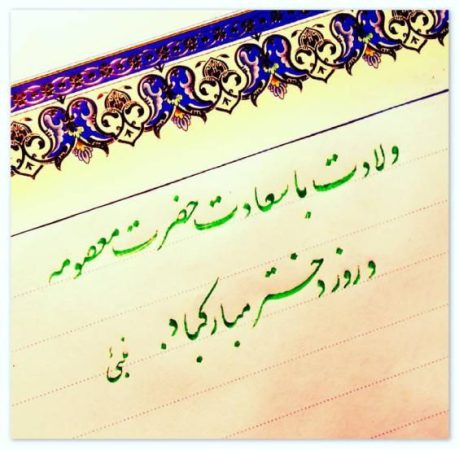 ولادت با سعادت حضرت معصومه
و روز دختر مبارکباد.